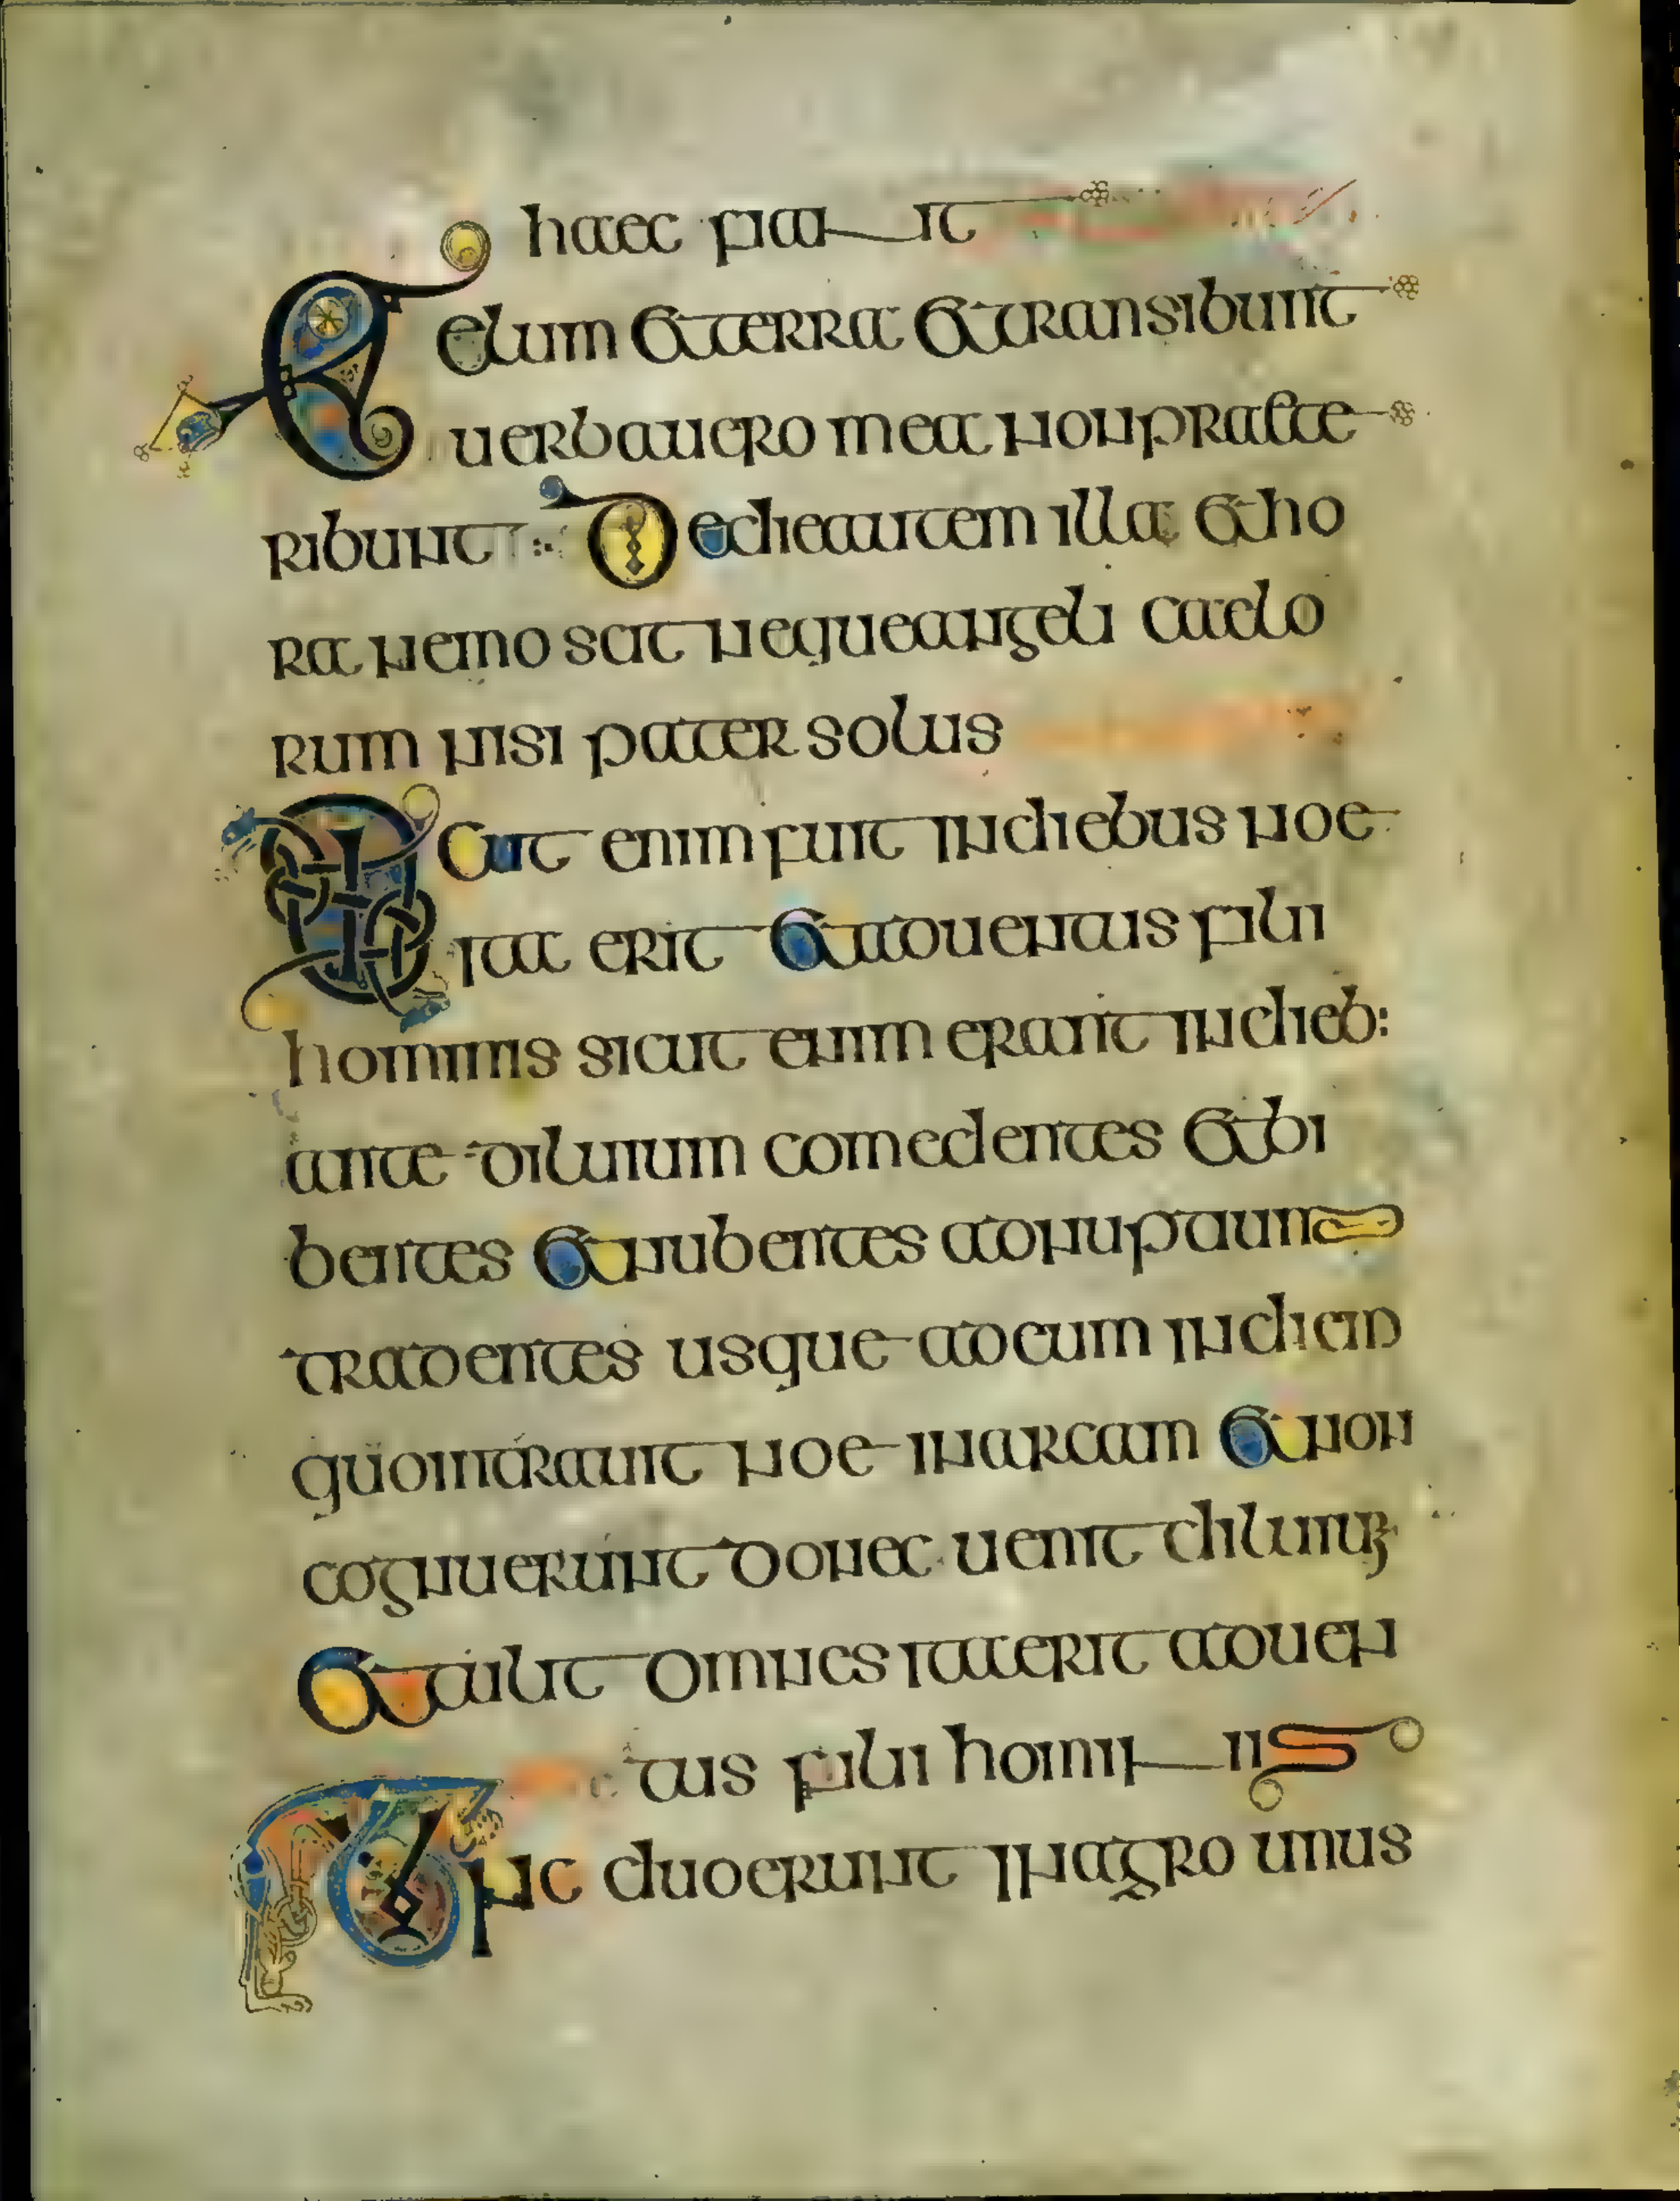 haec fiant
Celum et terra et transibunt
uerba uero mea non praete
ribunt De die autem illa et ho
ra nemo scit neque angeli caelo
rum nisi pater solus
Sicut enim fuit in diebus noe
ita erit et aduentus filii
hominis sicut enim erant in dieb:
ante diluuium comedentes et bi
bentes et nubentes ad nupaum
tradentes usque ad eum in diem
quo intrauit noe in arcam et non
cognuerunt donec uenit diluium
et tulit omnes ita erit aduen
tus filii hominis
Tunc duo erunt in agro unus